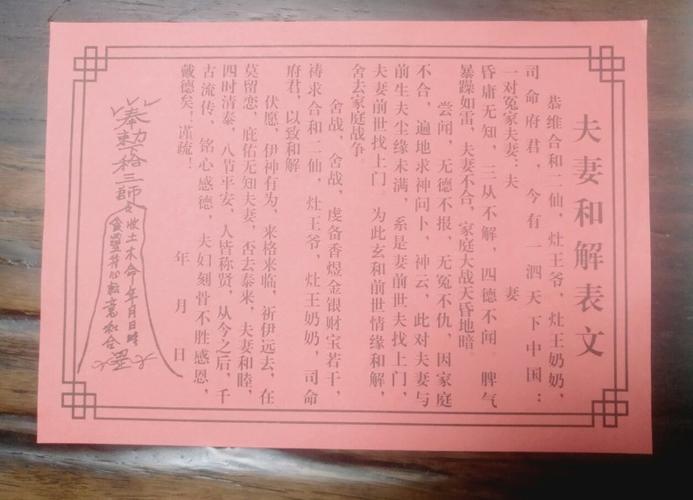 夫妻和解表文
恭维合和二仙，灶王爷，灶王奶奶，
司命府君，今有一泗天下中国：
一对冤家夫妻：夫 妻
昏庸无知，三从不解，四德不闻 脾气
暴躁如雷，夫妻不合，家庭大战天昏地暗
尝闻，无德不报，无冤不仇，因家庭
不合，遍地求神问卜，神云，此对夫妻与
前生夫尘缘未满，系是妻前世夫找上门，
夫妻前世找上门 为此玄和前世情缘和解，
舍去家庭战争
舍战，舍战，虔备香煜金银财宝若干，
祷求合和二仙，灶王爷，灶王奶奶，司命
府君，以致和解
伏愿，伊神有为，来格来临，祈伊远去，在
莫留恋，庇佑无知夫妻，否去泰来，夫妻和睦，
四时清泰，八节平安，人皆称贤，从今之后，千
古流传，铭心感德，夫妇刻骨不胜感恩，
戴德矣！谨疏！
年 月 日
奉勅
三師
收土木命 年月日時
合